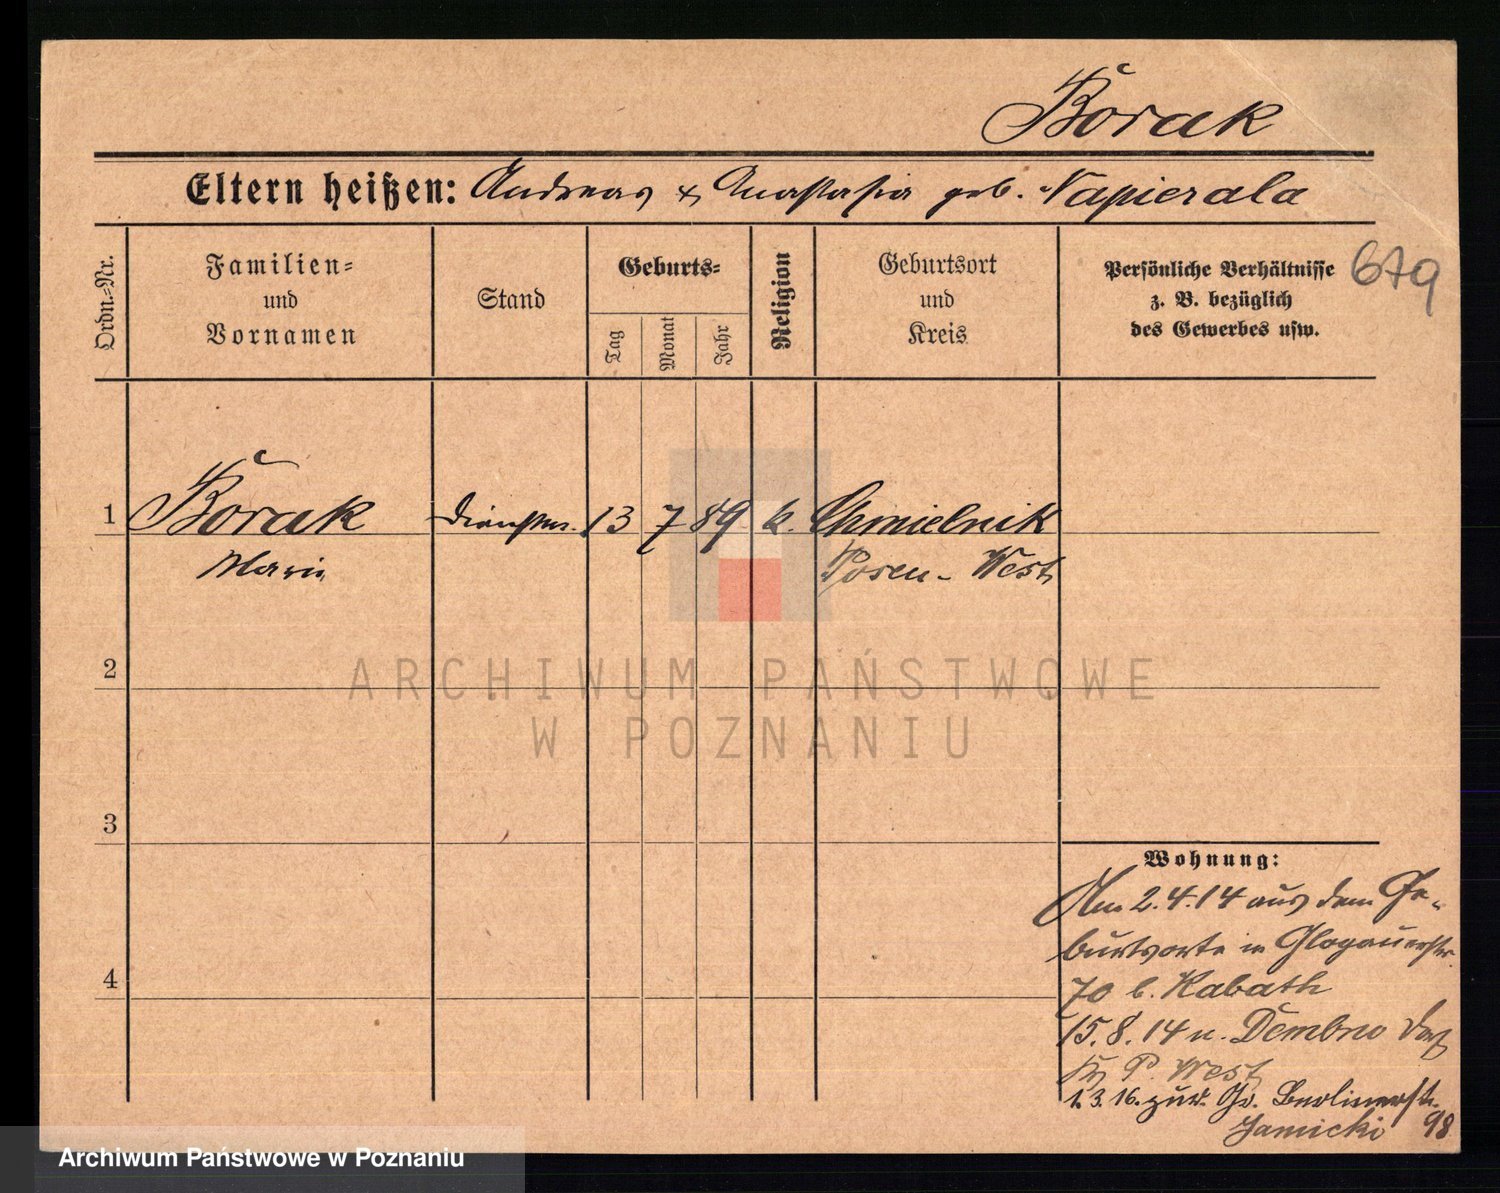 Borak
Eltern heißen: Andreas & Anastasia geb. Napierala
Ordn.=Nr.
Familien=
und
Vornamen
Stand
Geburts=
Tag
Monat
Jahr
Religion
Geburtsort
und
Kreis
Persönliche Verhältnisse
z. B. bezüglich
des Gewerbes usw.
679
1 Borak Dienstm. 13 7 89 k. Chmielnik
Marie Posen-West
2
ARCHIWUM PAŃSTWOWE
W POZNANIU
3
Wohnung:
Am 2.4.14 aus dem Ge-
burtsorte in Glogauerstr.
4
70 b. Kabath
15.8.14 n. Dembno
P. West
1.3.16. zur. Berlinerstr.
Jamicki 98
Archiwum Państwowe w Poznaniu